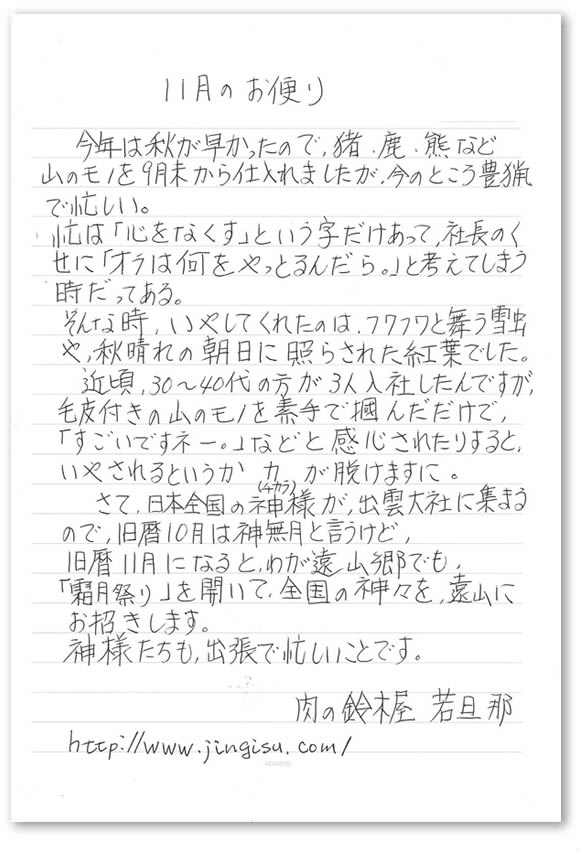 11月のお便り
今年は秋が早かったので、猪・鹿・熊など
山のモノを9月末から仕入れましたが、今のところ豊猟
で忙しい。
忙は「心をなくす」という字だけあって、社長のく
せに「オラは何をやっとるんだら。」と考えてしまう
時だってある。
そんな時、いやしてくれたのは、フワフワと舞う雪虫
や、秋晴れの朝日に照らされた紅葉でした。
近頃、30〜40代の方が3人入社したんですが、
毛皮付きの山のモノを素手で掴んだだけで、
「すごいですネー。」などと感心されたりすると、
いやされるというか力が脱けますに。
(チカラ)
さて、日本全国の神様が、出雲大社に集まる
ので、旧暦10月は神無月と言うけど、
旧暦11月になると、わが遠山郷でも、
「霜月祭り」を開いて、全国の神々を、遠山に
お招きします。
神様たちも、出張で忙しいことです。
肉の鈴木屋 若旦那
http://www.jingisu.com/
KOKUYO